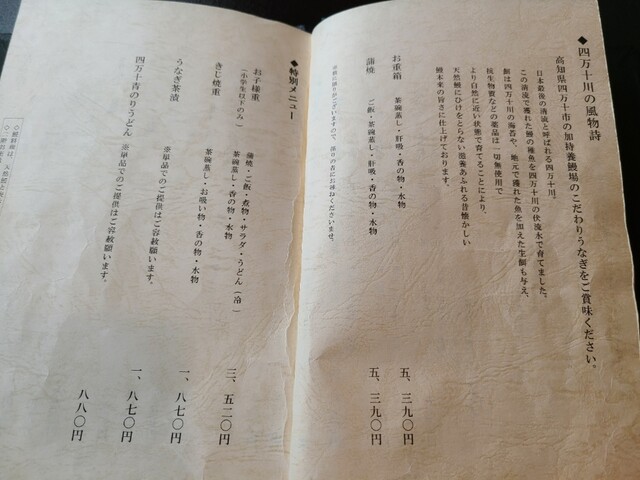 ◆四万十川の風物詩
高知県四万十市の加持養鰻場のこだわりうなぎをご賞味ください。
日本最後の清流と呼ばれる四万十川。
この清流で獲れた鰻の稚魚を四万十川の伏流水で育てました。
餌は四万十川の海苔や、地元で獲れた魚を加えた生餌も与え、
抗生物質などの薬品は一切無使用で
より自然に近い状態で育てることにより、
天然鰻にひけをとらない滋養あふれる昔懐かしい
鰻本来の旨さに仕上げております。
お重箱 茶碗蒸し・肝吸・香の物・水物 五、三九〇円
蒲焼 ご飯・茶碗蒸し・肝吸・香の物・水物 五、三九〇円
◆特別メニュー
お子様重 蒲焼・ご飯・煮物・サラダ・うどん（冷） 三、五二〇円
（小学生以下のみ） 茶碗蒸し・香の物・水物
きじ焼重 茶碗蒸し・お吸い物・香の物・水物 一、八七〇円
うなぎ茶漬 ※単品でのご提供はご容赦願います。 一、八七〇円
四万十青のりうどん ※単品でのご提供はご容赦願います。 八八〇円